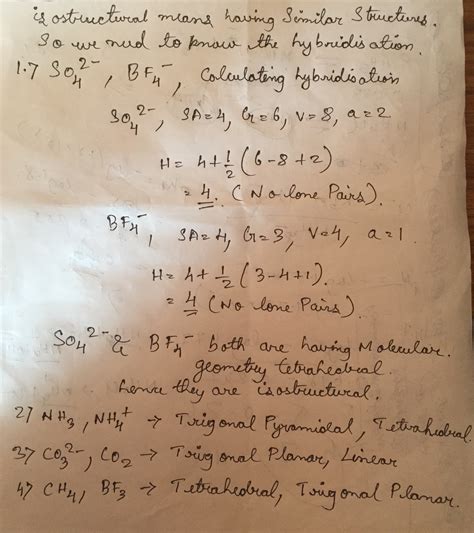 isostructural means having Similar Structures.
So we need to know the hybridisation.
1.7 SO₄²⁻, BF₄⁻, Calculating hybridisation
SO₄²⁻, SA=4, G=6, V=8, a=2
H= 4+1/2(6-8+2)
= 4. (No lone Pairs).
BF₄⁻, SA=4, G=3, V=4, a=1
H= 4+1/2(3-4+1).
= 4 (No lone Pairs).
SO₄²⁻ & BF₄⁻ both are having Molecular.
geometry tetrahedral.
hence they are isostructural.
27 NH₃, NH₄⁺ → Trigonal Pyramidal, Tetrahedral
37 CO₃²⁻, CO₂ → Trigonal Planar, Linear
47 CH₄, BF₃ → Tetrahedral, Trigonal Planar.